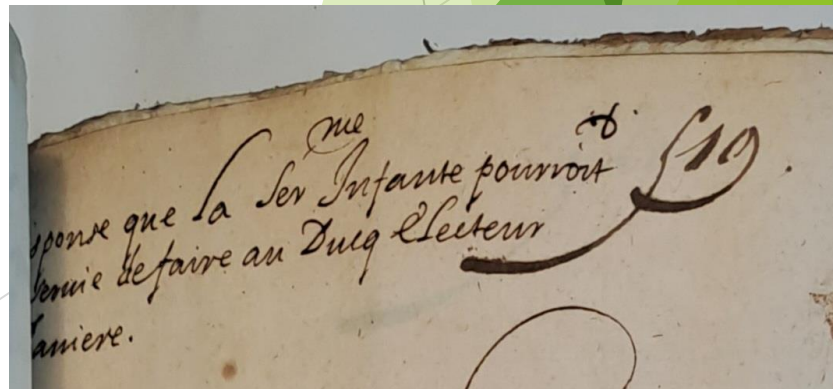 sponse que la Ser^me Infante pourroit 519.
servie de faire au Ducq Electeur
aniere.